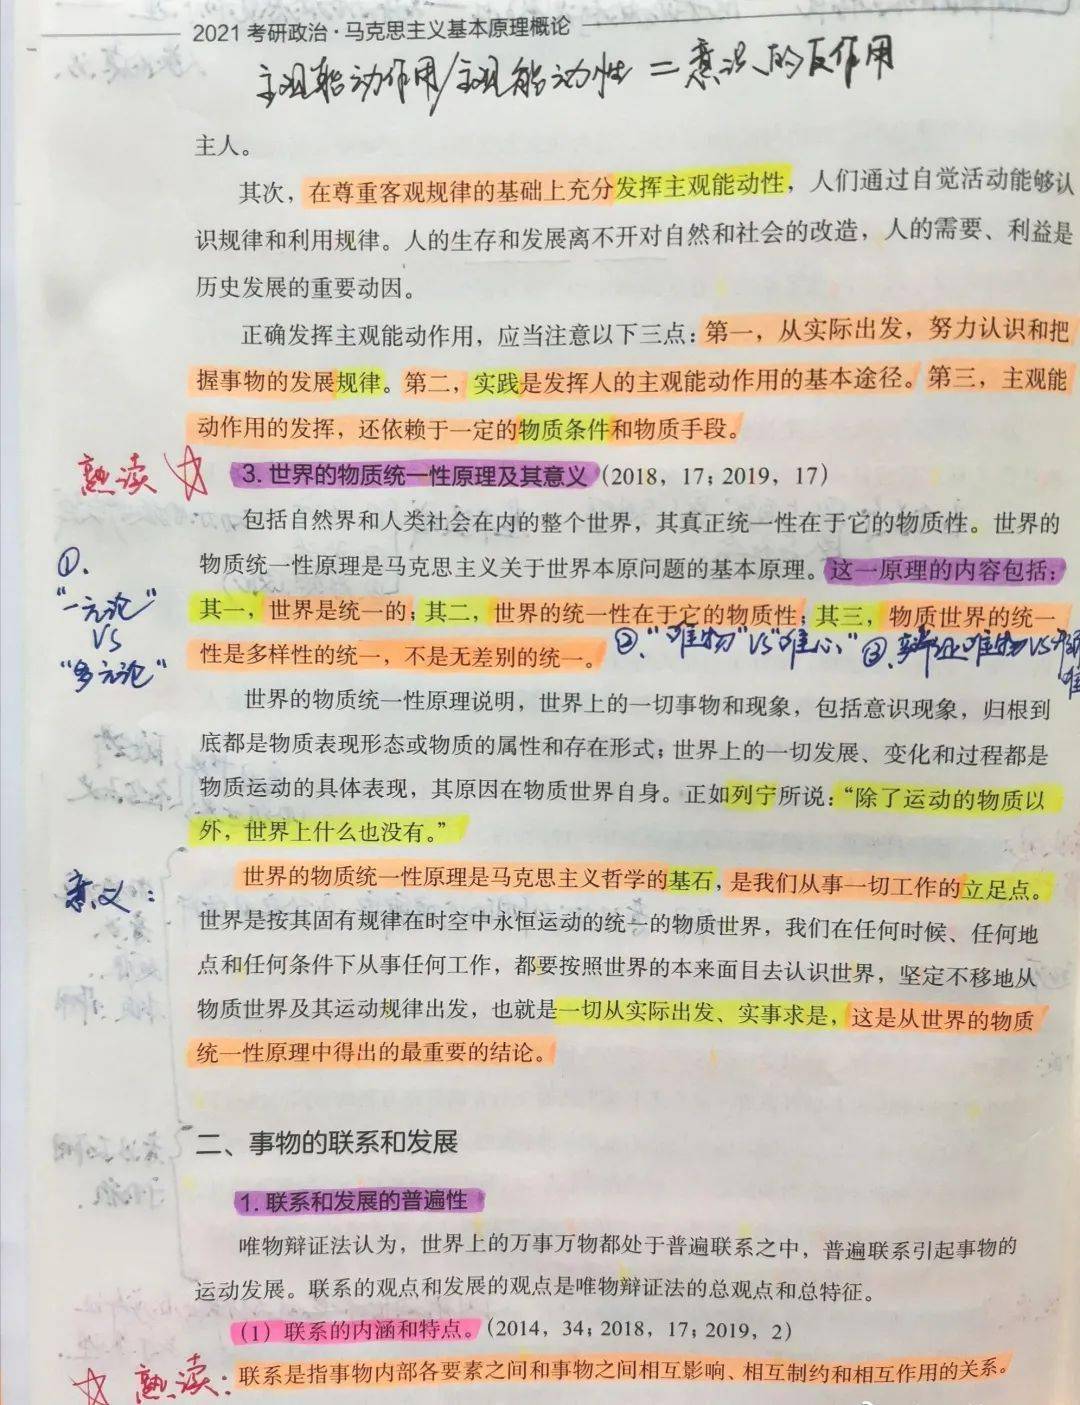 2021考研政治·马克思主义基本原理概论
主观能动作用/主观能动性 = 意识的反作用
主人。
其次，在尊重客观规律的基础上充分发挥主观能动性，人们通过自觉活动能够认
识规律和利用规律。人的生存和发展离不开对自然和社会的改造，人的需要、利益是
历史发展的重要动因。
正确发挥主观能动作用，应当注意以下三点：第一，从实际出发，努力认识和把
握事物的发展规律。第二，实践是发挥人的主观能动作用的基本途径。第三，主观能
动作用的发挥，还依赖于一定的物质条件和物质手段。
熟读 3. 世界的物质统一性原理及其意义（2018，17；2019，17）
包括自然界和人类社会在内的整个世界，其真正统一性在于它的物质性。世界的
物质统一性原理是马克思主义关于世界本原问题的基本原理。这一原理的内容包括：
其一，世界是统一的；其二，世界的统一性在于它的物质性；其三，物质世界的统一
性是多样性的统一，不是无差别的统一。
①.
"一元论"
VS
"多元论"
②."唯物"VS"唯心"
③.辩证唯物VS
世界的物质统一性原理说明，世界上的一切事物和现象，包括意识现象，归根到
底都是物质表现形态或物质的属性和存在形式；世界上的一切发展、变化和过程都是
物质运动的具体表现，其原因在物质世界自身。正如列宁所说：“除了运动的物质以
外，世界上什么也没有。”
意义：
世界的物质统一性原理是马克思主义哲学的基石，是我们从事一切工作的立足点。
世界是按其固有规律在时空中永恒运动的统一的物质世界，我们在任何时候、任何地
点和任何条件下从事任何工作，都要按照世界的本来面目去认识世界，坚定不移地从
物质世界及其运动规律出发，也就是一切从实际出发、实事求是，这是从世界的物质
统一性原理中得出的最重要的结论。
二、事物的联系和发展
1. 联系和发展的普遍性
唯物辩证法认为，世界上的万事万物都处于普遍联系之中，普遍联系引起事物的
运动发展。联系的观点和发展的观点是唯物辩证法的总观点和总特征。
（1）联系的内涵和特点。（2014，34；2018，17；2019，2）
熟读：联系是指事物内部各要素之间和事物之间相互影响、相互制约和相互作用的关系。